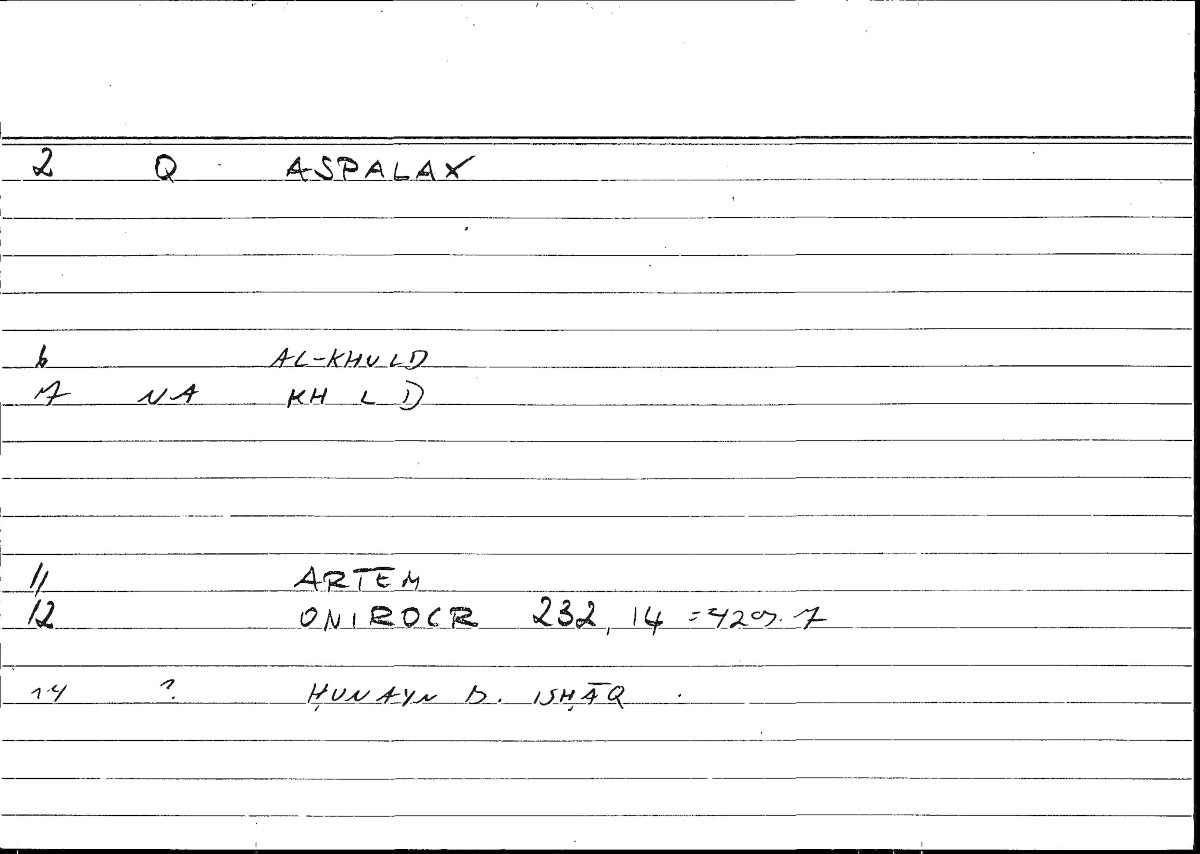 2 Q ASPALAX
6 AL-KHULD
7 NA KH L D
11 ARTEM
12 ONIROCR 232, 14 = 420, 7
14 ? ḤUNAYN B. ISḤĀQ